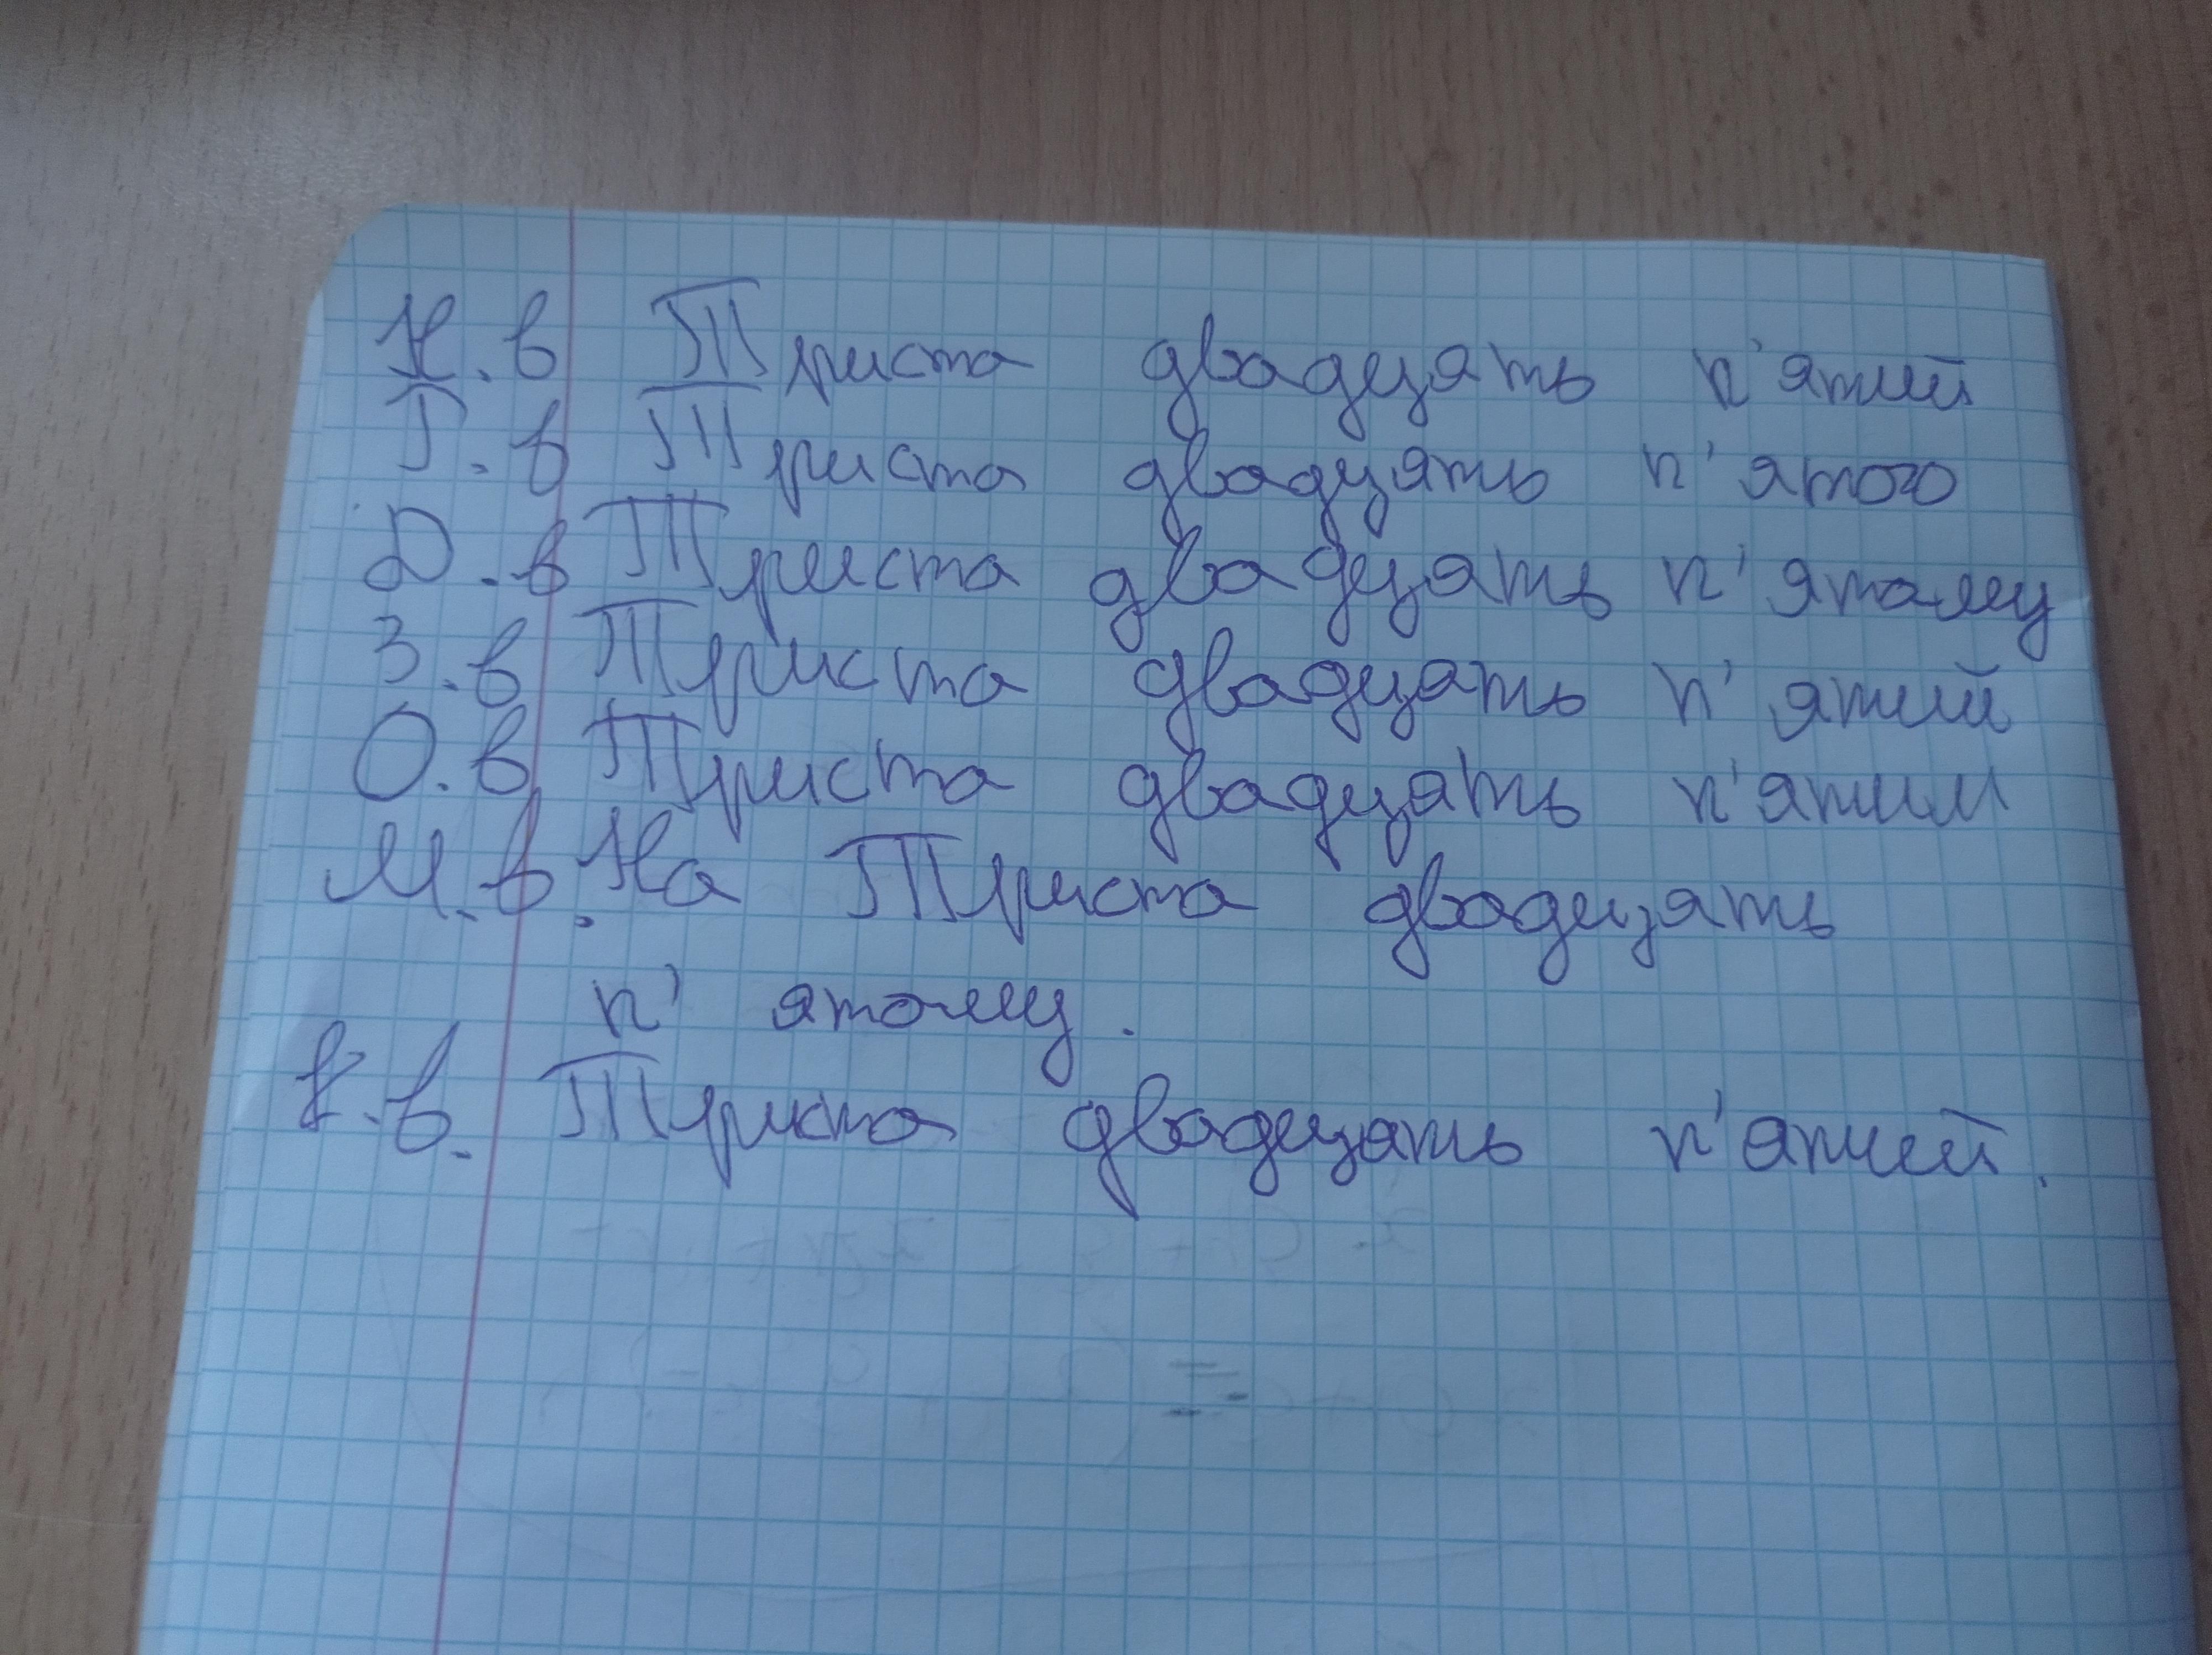 Н.в Триста двадцять п'ятий
Г.в Триста двадцять п'ятого
Д.в Триста двадцять п'ятому
З.в Триста двадцять п'ятий
О.в Триста двадцять п'ятим
М.в. На Триста двадцять
п'ятому.
К.в. Триста двадцять п'ятий.